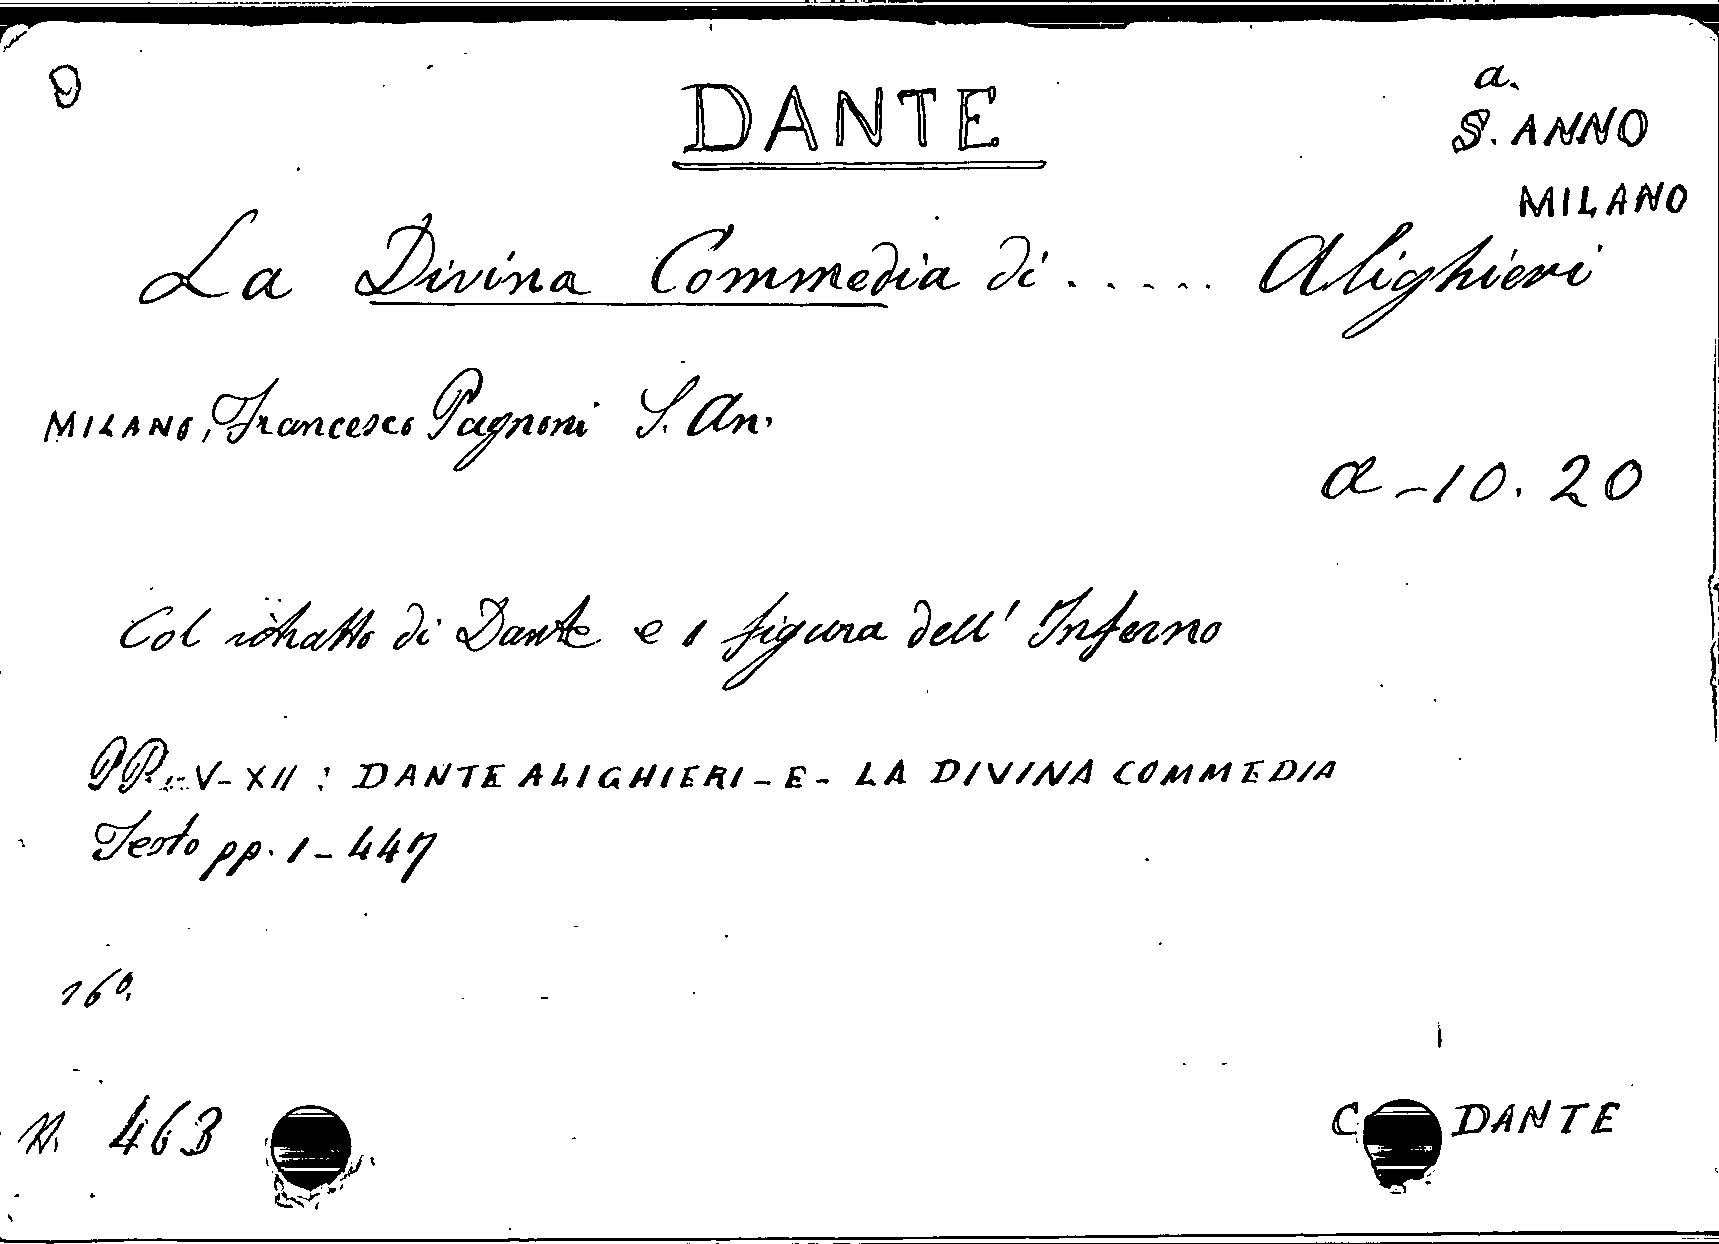 D
DANTE
a.
S. ANNO
MILANO
La Divina Commedia di ..... Alighieri
MILANO, Francesco Pagnoni S. An.
a-10.20
Col ritratto di Dante e 1 figura dell' Inferno
PP. V-XII : DANTE ALIGHIERI - E - LA DIVINA COMMEDIA
Testo pp. 1-447
16º.
N. 463
C DANTE